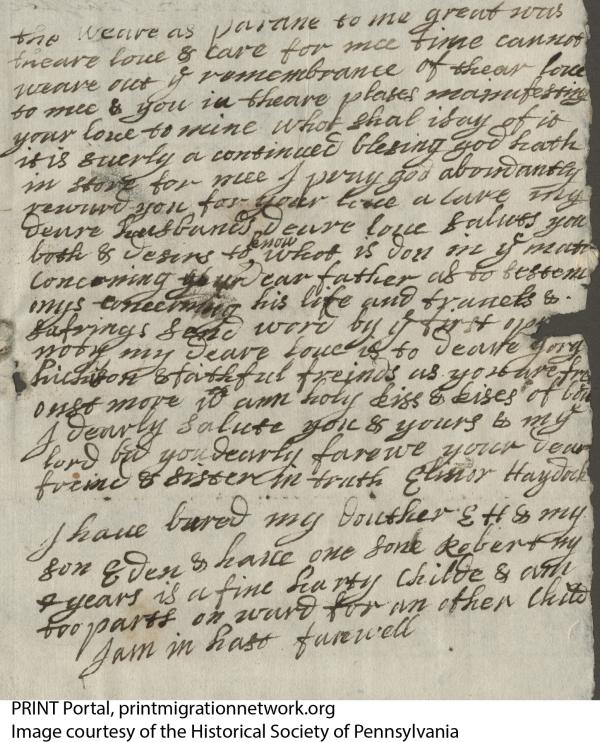 the weare as parane to me great was
theare loue & care for mee time cannot
weare out ye remembrance of thear loue
to mee & you in theare plases manifesting
your loue to mine what shal i say of it
it is suerly a continued blesing god hath
in store for mee I pray god abondantly
reward you for your loue & care my
deare husbands deare loue saluts you
both & desirs to know what is don in ye mater
Concerning your dear father as to testem
onys concerning his life and trauels &
safrings send word by ye first opr
noty my deare loue is to deare gorg
hichison & fathful freinds as you are fre
onst more in ann holy kiss & kises of loue
I dearly salute you & yours & my
lord bid you dearly farewe your dear
freind & sister in truth Elinor Haydock
I haue bured my douther E H & my
son Eden & haue one sone Robert my
years is a fine harty Childe & am
too parts on ward for an other Child
I am in hast farewell
PRINT Portal, printmigrationnetwork.org
Image courtesy of the Historical Society of Pennsylvania